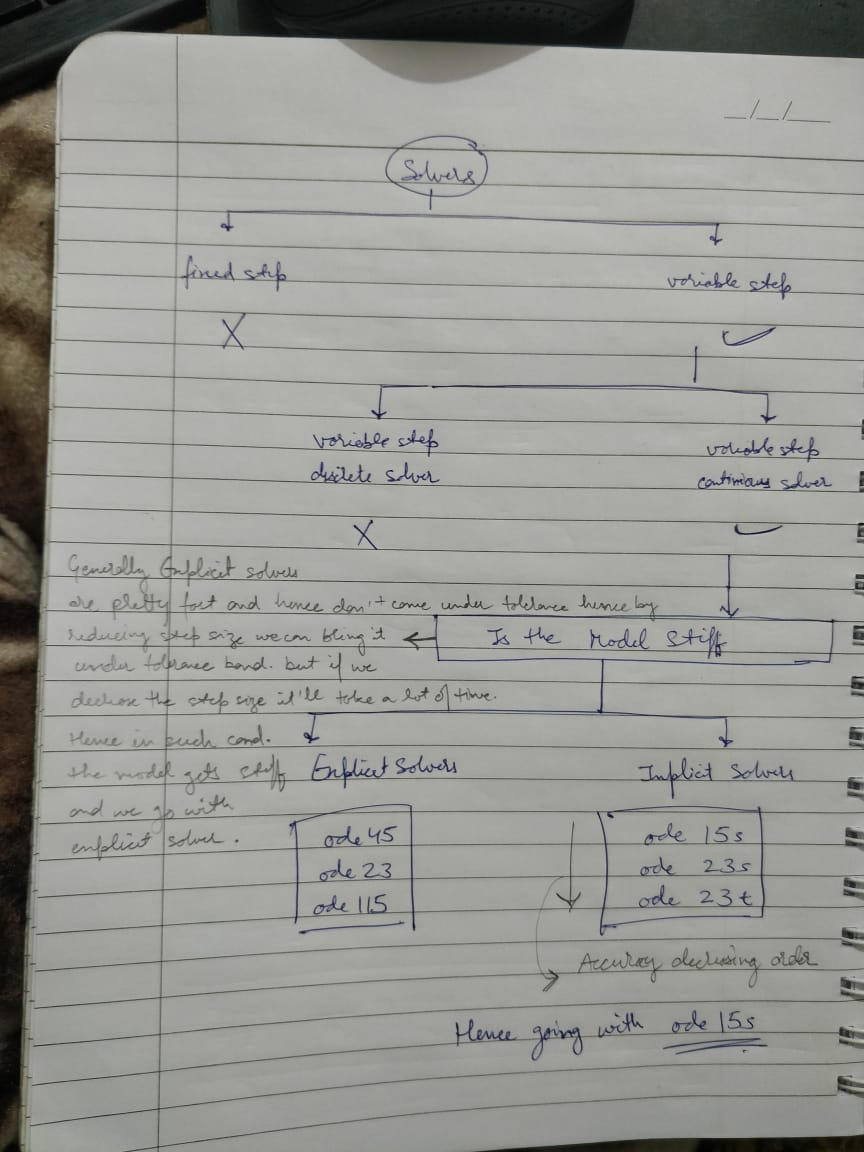 _/_/_
Solvers
fixed step
variable step
X
variable step
discrete solver
variable step
continious solver
X
Generally Explicit solvers
are pretty fast and hence don't come under tolerance hence by
reducing step size we can bring it
under tolerance band. but if we
decrease the step size it'll take a lot of time.
Hence in such cond.
the model gets stiff
and we go with
explicit solver.
Is the Model Stiff
Explicit Solvers
Implicit Solvers
ode 45
ode 23
ode 115
ode 15s
ode 23s
ode 23t
Accuracy decreasing order
Hence going with ode 15s